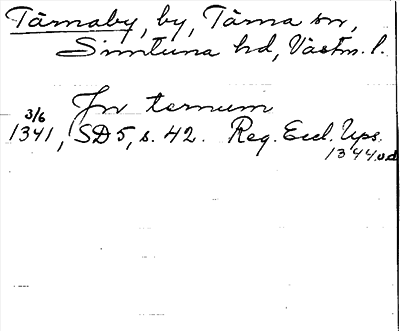 Tärnaby, by, Tärna sn,
Simtuna hd, Västm. l.
Jn ternum
3/6
1341, SD 5, s. 42. Reg. Eccl. Ups.
1344 od